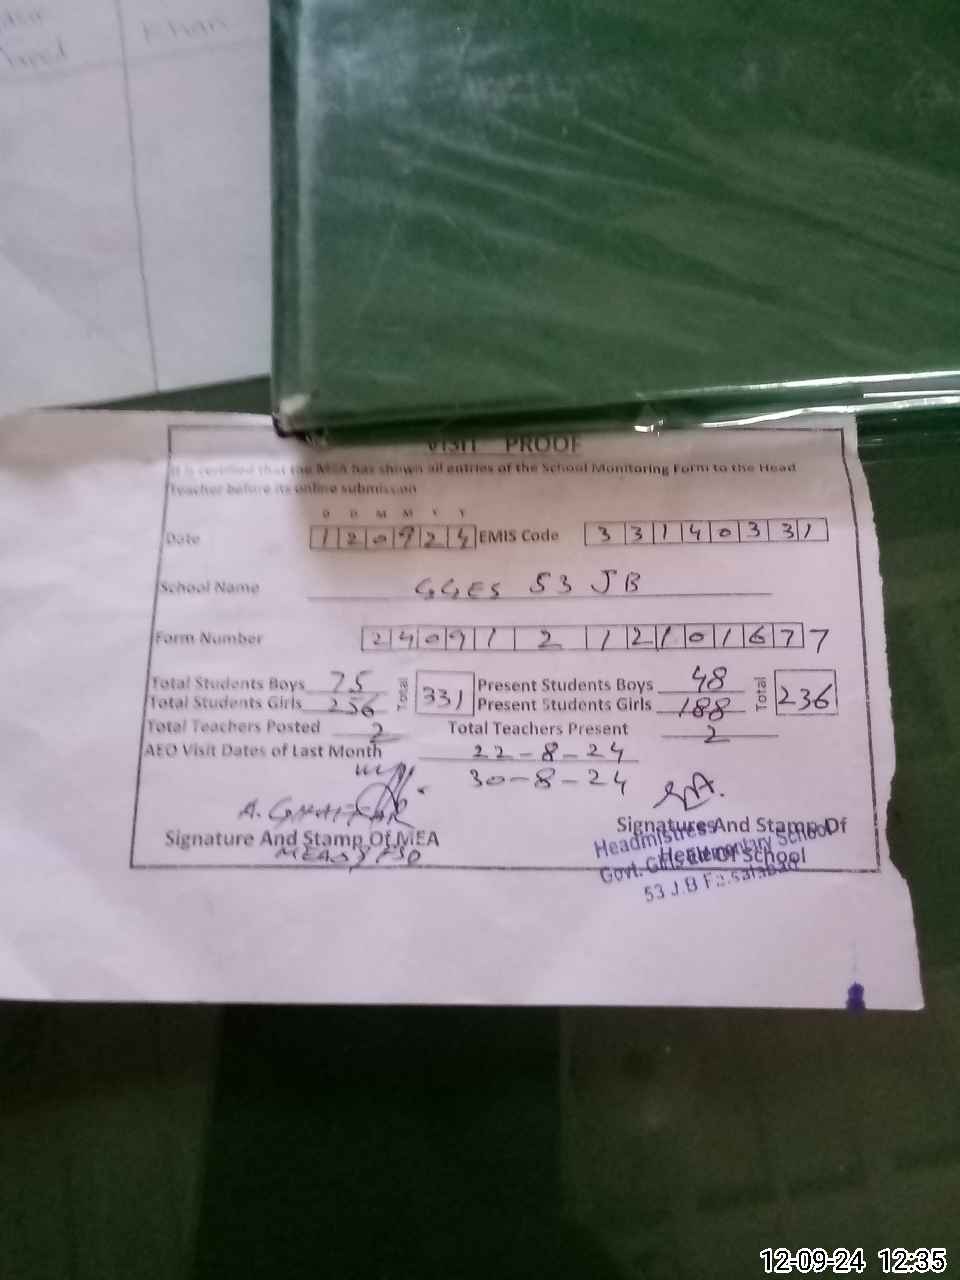 Khan
VISIT PROOF
It is certified that the MEA has shown all entries of the School Monitoring Form to the Head
Teacher before its online submission
D D M M Y Y
Date 120924 EMIS Code 33140331
School Name GGES 53 JB
Form Number 2409121210 1677
Total Students Boys 75 Total 331 Present Students Boys 48 Total 236
Total Students Girls 256 Present Students Girls 188
Total Teachers Posted 2 Total Teachers Present 2
AEO Visit Dates of Last Month 22-8-24
30-8-24
A. GHAFFAR
Signature And Stamp Of MEA
Signature And Stamp Of
Head Of School
Headmistress
Govt. Girls Elementary School
53 J.B Faisalabad
12-09-24 12:35